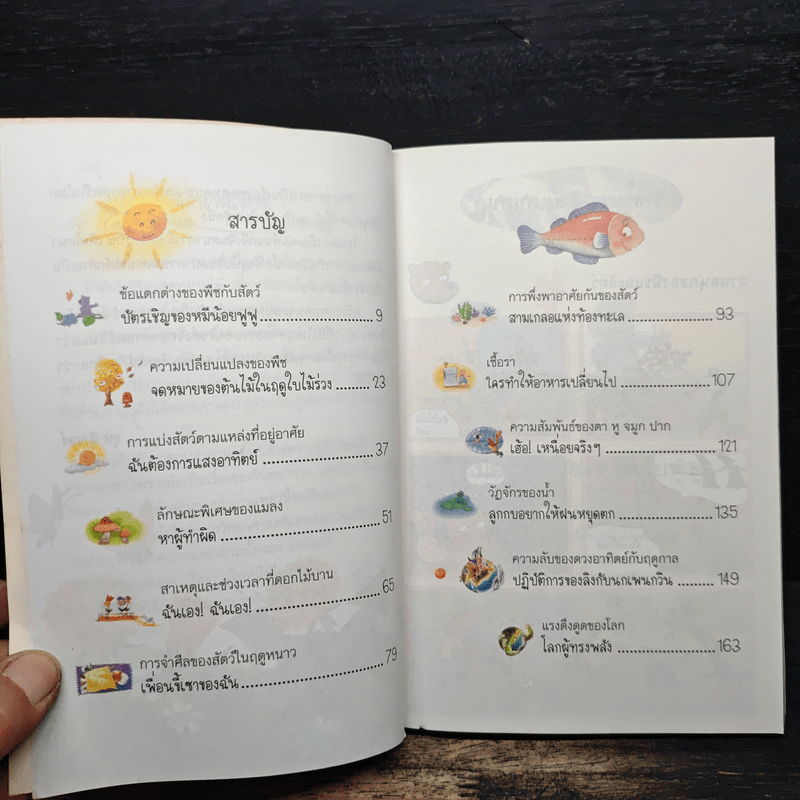 สารบัญ
ข้อแตกต่างของพืชกับสัตว์
บัตรเชิญของหมีน้อยฟูฟู.......................... 9
ความเปลี่ยนแปลงของพืช
จดหมายของต้นไม้ในฤดูใบไม้ร่วง ......... 23
การแบ่งสัตว์ตามแหล่งที่อยู่อาศัย
ฉันต้องการแสงอาทิตย์ .......................... 37
ลักษณะพิเศษของแมลง
หาผู้ทำผิด ..................................... 51
สาเหตุและช่วงเวลาที่ดอกไม้บาน
ฉันเอง! ฉันเอง! ............................... 65
การจำศีลของสัตว์ในฤดูหนาว
เพื่อนขี้เซาของฉัน................................ 79
การพึ่งพาอาศัยกันของสัตว์
สามเกลอแห่งท้องทะเล ........................ 93
เชื้อรา
ใครทำให้อาหารเปลี่ยนไป ....................107
ความสัมพันธ์ของตา หู จมูก ปาก
เฮ้อ! เหนื่อยจริงๆ ............................... 121
วัฏจักรของน้ำ
ลูกกบอยากให้ฝนหยุดตก ....................... 135
ความลับของดวงอาทิตย์กับฤดูกาล
ปฏิบัติการของลิงกับนกเพนกวิน .......... 149
แรงดึงดูดของโลก
โลกผู้ทรงพลัง ............................163